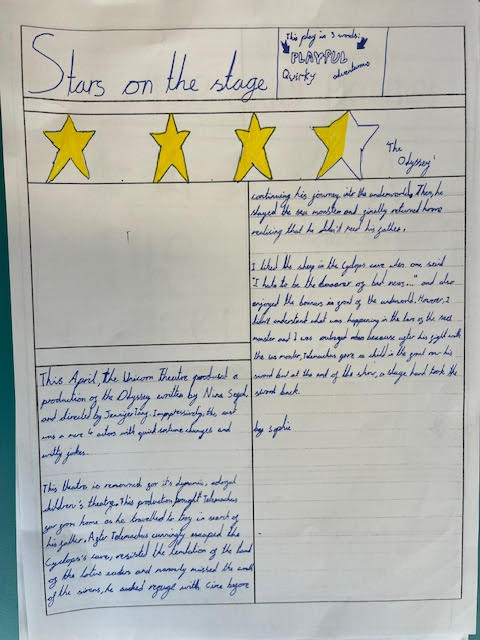 Stars on the stage
This play in 3 words:
PLAYFUL
Quirky adventurous
The
Odyssey'
This April, the Unicorn Theatre produced a
production of the Odyssey written by Nina Segal
and directed by Jennifer Tang. Imppressively, the cast
was a mere 4 actors with quick costume changes and
witty jokes.
This theatre is renowned for it's dynamic,
children's theatre. This production brought Telemachus
far from home as he travelled to Troy in search of
his father. After Telemachus cunningly escaped the
Cyclops's cave, resisted the temtation of the land
of the lotus eaters and narrowly missed the
of the sirens, he seeked refuge with Circe before
continuing his journey into the underworld. Then, he
slayed the sea monster and finally returned home
realising that he didn't need his father.
I liked the sheep in the Cyclops cave when one said
"I hate to be the bearer of bad news..." and also
enjoyed the in front of the underworld. However, I
didn't understand what was happening in the of the sea
monster and I was because after his fight with
the sea monster, Telemachus gave a child in the front row his
sword but at the end of the show, a stage hand took the
sword back.
by sophie